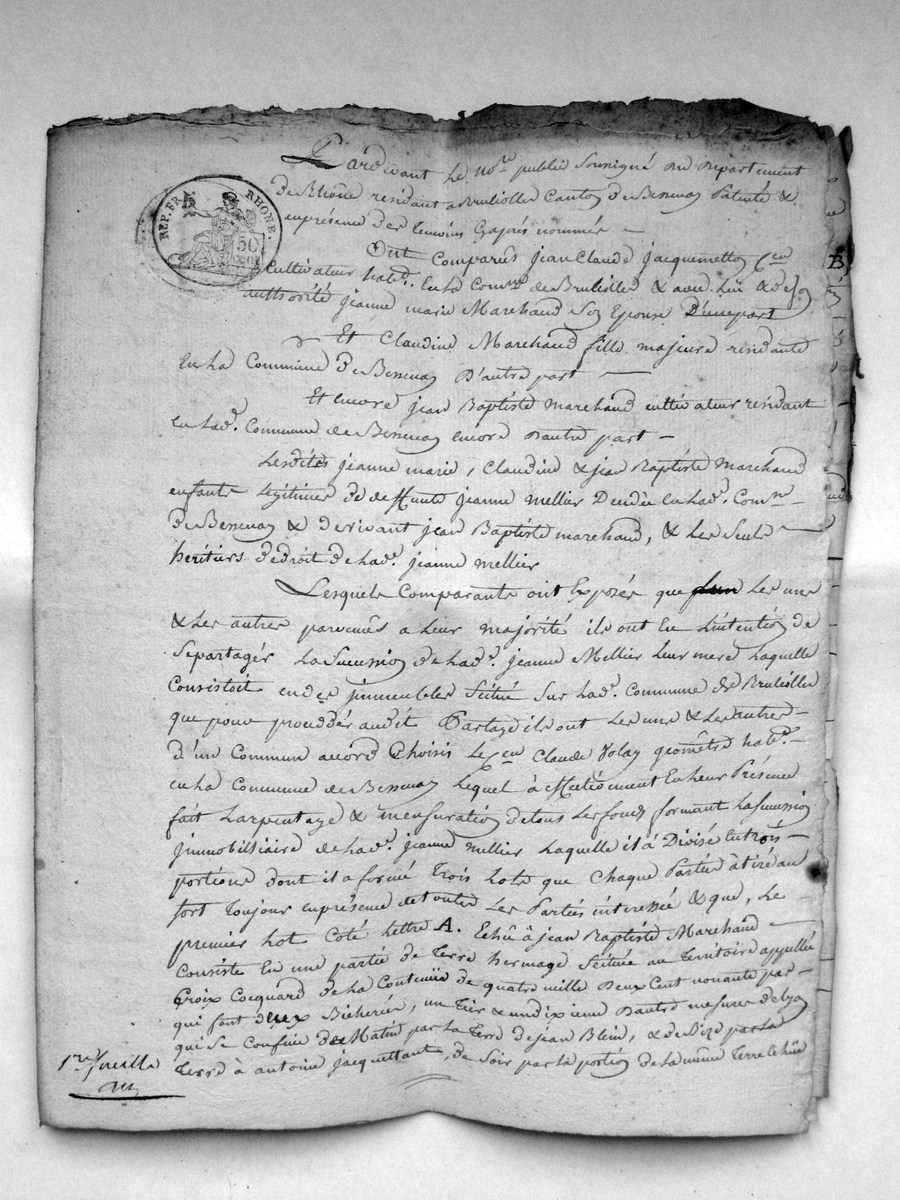 REP. FRA
RHONE.
50
CENT
Pardevant Le No.re public Soussigné Du Département
de Rhône residant a Brulliolle Canton de Bessenay Patenté &
en présence des temoins Cy après nommés —
Ont Comparus jean Claude jacquemetton Cen
Cultivateur hab.t En la Comne de Brulliolle & avec Lui & de son
authorité jeanne marie Marchand Son Epouse D'une part
Et Claudine Marchand fille majeure residante
En La Commune de Bessenay D'autre part —
Et encore jean Baptiste marchand cultivateur residant
en lad. Commune de Bessenay encore Dautre part —
Lesdites jeanne marie, Claudine & jean Baptiste Marchand
enfants Legitimes de deffunte jeanne mellier Decedée en lad. Comne
de Bessenay & de vivant jean Baptiste marchand, & Les Seuls
heritiers de droit de lad. jeanne mellier
Lesquels Comparants ont Exposés que Les uns
& Les autres parvenus a Leur majorité ils ont Eu L'intention de
Se partager La Succession de lad. jeanne Mellier Leur mere Laquelle
Consistoit en des jmmeubles Scitué Sur lad. Commune de Brulliolle
que pour proceder audit Partage ils ont Les uns & Les autres
d'un Commun accord Choisis Le Cen Claude Volay geomêtre hab.t
en La Commune de Bessenay Lequel à Effectivement En Leur Présence
fait Larpentage & mensuration de tous Les fonds formant La Succession
jmmobilliaire de lad. jeanne mellier Laquelle il à Divisé en trois
portions dont il a formé Trois Lots que Chaque Partie à tiré au
sort Toujour en présence de toutes Les Parties interessé & que, Le
premier Lot Coté Lettre A. Echû à jean Baptiste Marchand —
Consiste En une partie de Terre hermage Scitué au Territoire appellé
Croix Cocquard de La Contenüe de quatre mille Deux Cent nonante pas
qui font deux Bicherées, un Tier & un dixieme Dautre mesure de Lyon
qui Se Confine de Matin par La Terre de jean Blein, & de Bize par La
Terre à antoine jacquettant, de Soir par La portion de La même Terre Echüe
1.re feuille